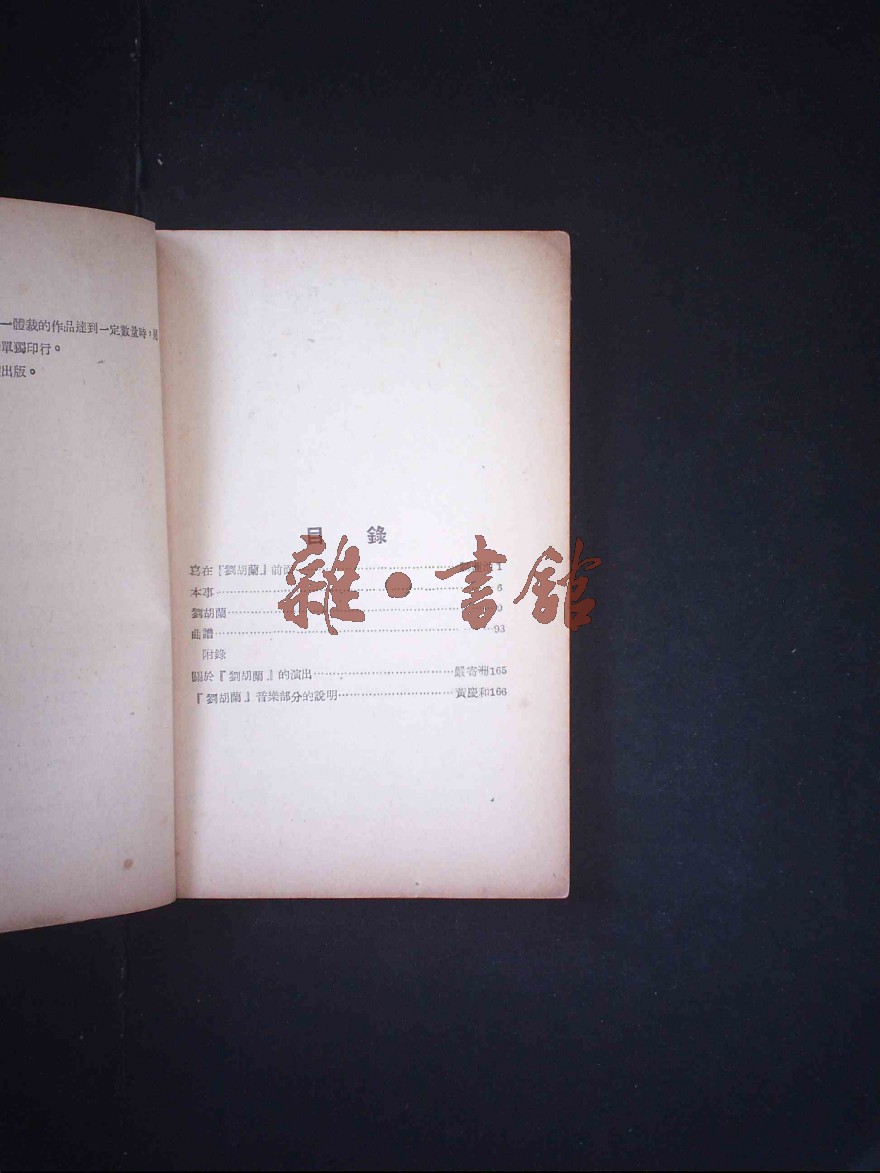 一體裁的作品達到一定數量時，
單獨印行。
出版。
目 錄
寫在『劉胡蘭』前面 1
本事 6
劉胡蘭
曲譜 93
附錄
關於『劉胡蘭』的演出 嚴寄洲165
『劉胡蘭』音樂部分的說明 黃慶和166
雜·書館